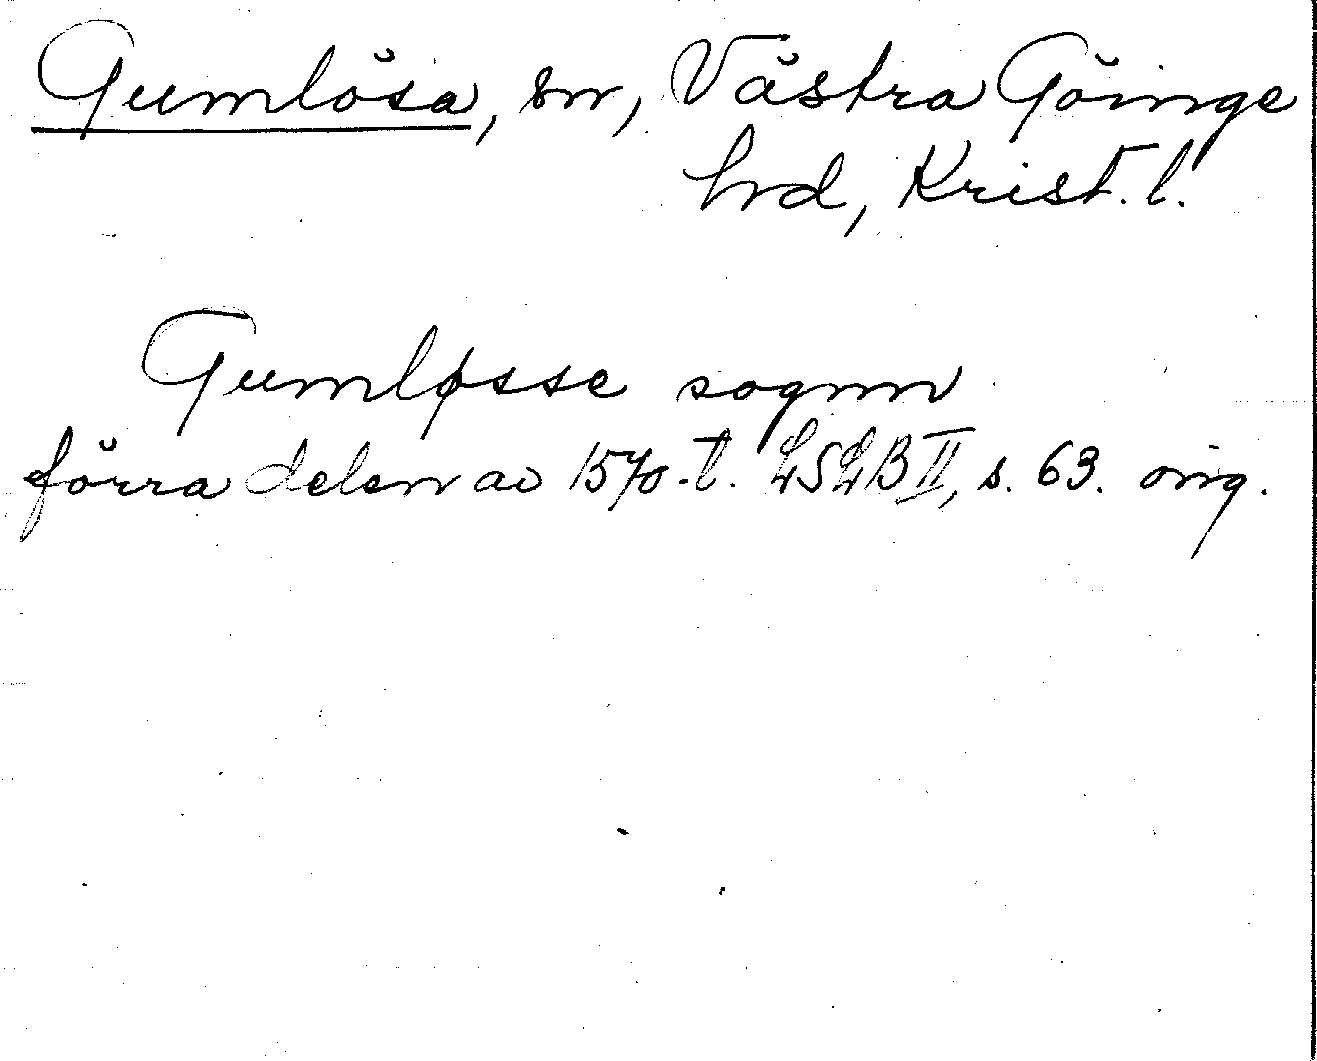 Gumlösa, sn, Västra Göinge
hrd, Krist. l.
Gumløsse sognn
förra delen av 1570-t. LSLB II, s. 63. orig.